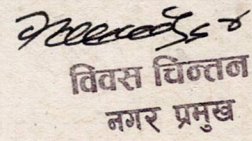 विवस चिन्तन
नगर प्रमुख